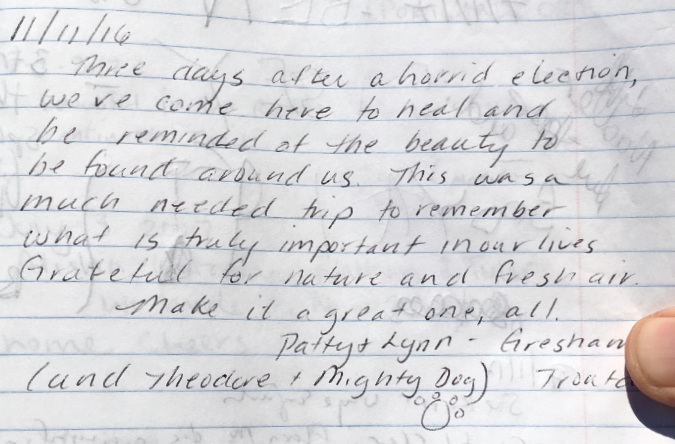 11/11/16
Three days after a horrid election,
we've come here to heal and
be reminded of the beauty to
be found around us. This was a
much needed trip to remember
what is truly important in our lives
Grateful for nature and fresh air.
Make it a great one, all.
Patty + Lynn - Gresham
(and Theodore + Mighty Dog) Troutd